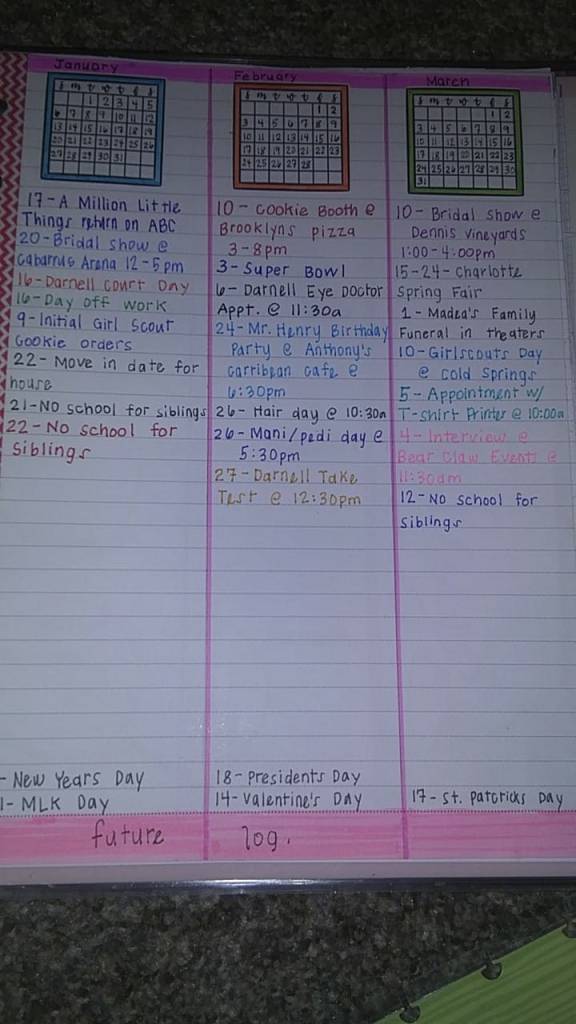 January
S m t w t f S
1 2 3 4 5
6 7 8 9 10 11 12
13 14 15 16 17 18 19
20 21 22 23 24 25 26
27 28 29 30 31
17-A Million Little
Things return on ABC
20-Bridal Show @
Cabarrus Arena 12-5pm
16-Darnell Court Day
16-Day off work
9-Initial Girl Scout
Cookie orders
22-Move in date for
house
21-No school for siblings
22-No school for
siblings
- New Years Day
1- MLK Day
February
S m t w t f S
1 2
3 4 5 6 7 8 9
10 11 12 13 14 15 16
17 18 19 20 21 22 23
24 25 26 27 28
10-Cookie Booth @
Brooklyns Pizza
3-8pm
3-Super Bowl
6-Darnell Eye Doctor
Appt. @ 11:30a
24-Mr. Henry Birthday
Party @ Anthony's
Carribean Cafe @
6:30pm
26-Hair day @ 10:30a
26-Mani/pedi day @
5:30pm
27-Darnell Take
Test @ 12:30pm
18-Presidents Day
14-Valentine's Day
March
S m t w t f S
1 2
3 4 5 6 7 8 9
10 11 12 13 14 15 16
17 18 19 20 21 22 23
24 25 26 27 28 29 30
31
10-Bridal Show @
Dennis Vineyards
1:00-4:00pm
15-24-Charlotte
Spring Fair
1-Madea's Family
Funeral in theaters
10-Girlscouts Day
@ Cold Springs
5-Appointment w/
T-shirt Printer @ 10:00a
4-Interview @
Bear Claw Events @
11:30am
12-No school for
siblings
17-St. Patricks Day
future log.